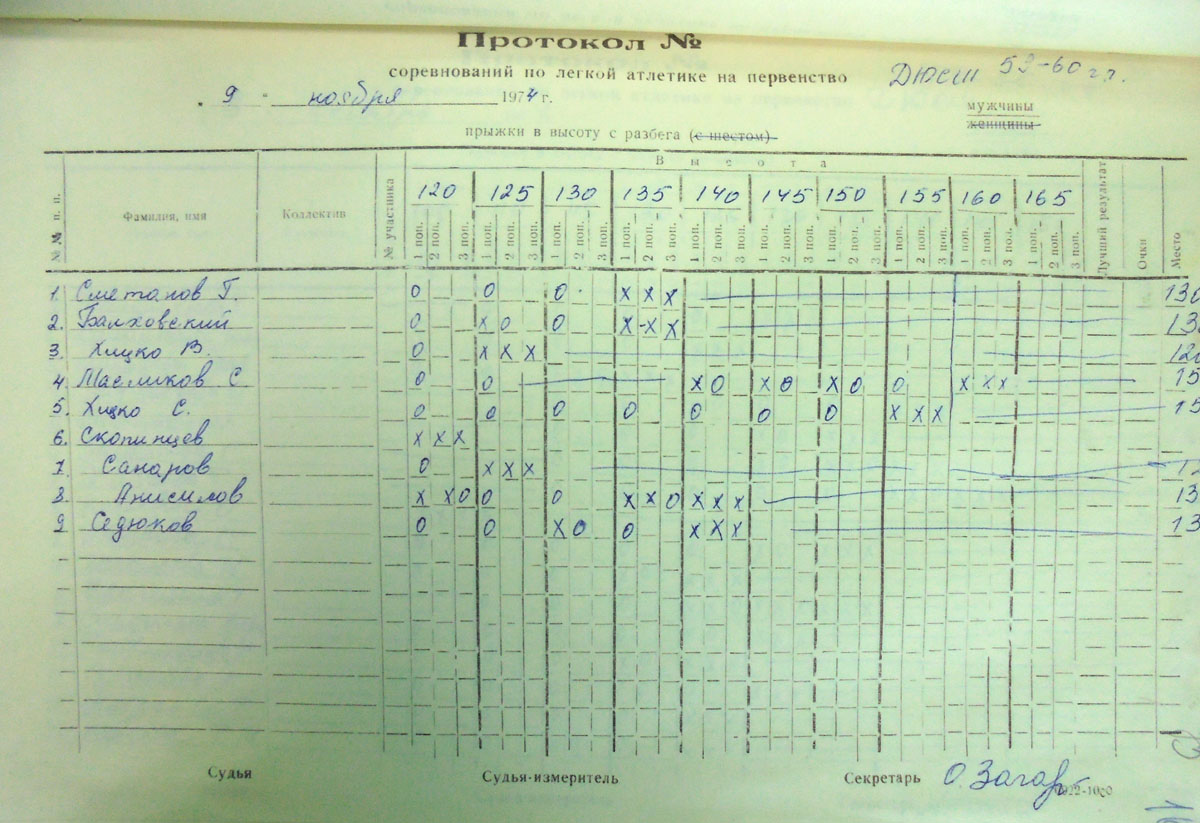 Протокол №
соревнований по легкой атлетике на первенство ДЮСШ 59-60 г.р.
„ 9 " ноября 1974 г. мужчины
женщины
прыжки в высоту с разбега (с шестом)
№№ п. п. Фамилия, имя Коллектив № участника Высота Лучший результат Очки Место
120 125 130 135 140 145 150 155 160 165
1 поп. 2 поп. 3 поп. 1 поп. 2 поп. 3 поп. 1 поп. 2 поп. 3 поп. 1 поп. 2 поп. 3 поп. 1 поп. 2 поп. 3 поп. 1 поп. 2 поп. 3 поп. 1 поп. 2 поп. 3 поп. 1 поп. 2 поп. 3 поп. 1 поп. 2 поп. 3 поп. 1 поп. 2 поп. 3 поп.
1. Сметанов Г. 0 0 0 х х х 130
2. Балховский 0 х 0 0 х х х 13
3. Хицко В. 0 х х х 120
4. Масликов С. 0 0 х 0 х 0 х 0 0 х х х 15
5. Хицко С. 0 0 0 0 0 0 0 х х х 15
6. Скопинцев х х х
7. Санаров 0 х х х
8. Анисимов х х 0 0 0 х х 0 х х х 13
9 Седюков 0 0 х 0 0 х х х 13
Судья Судья-измеритель Секретарь О. Загар